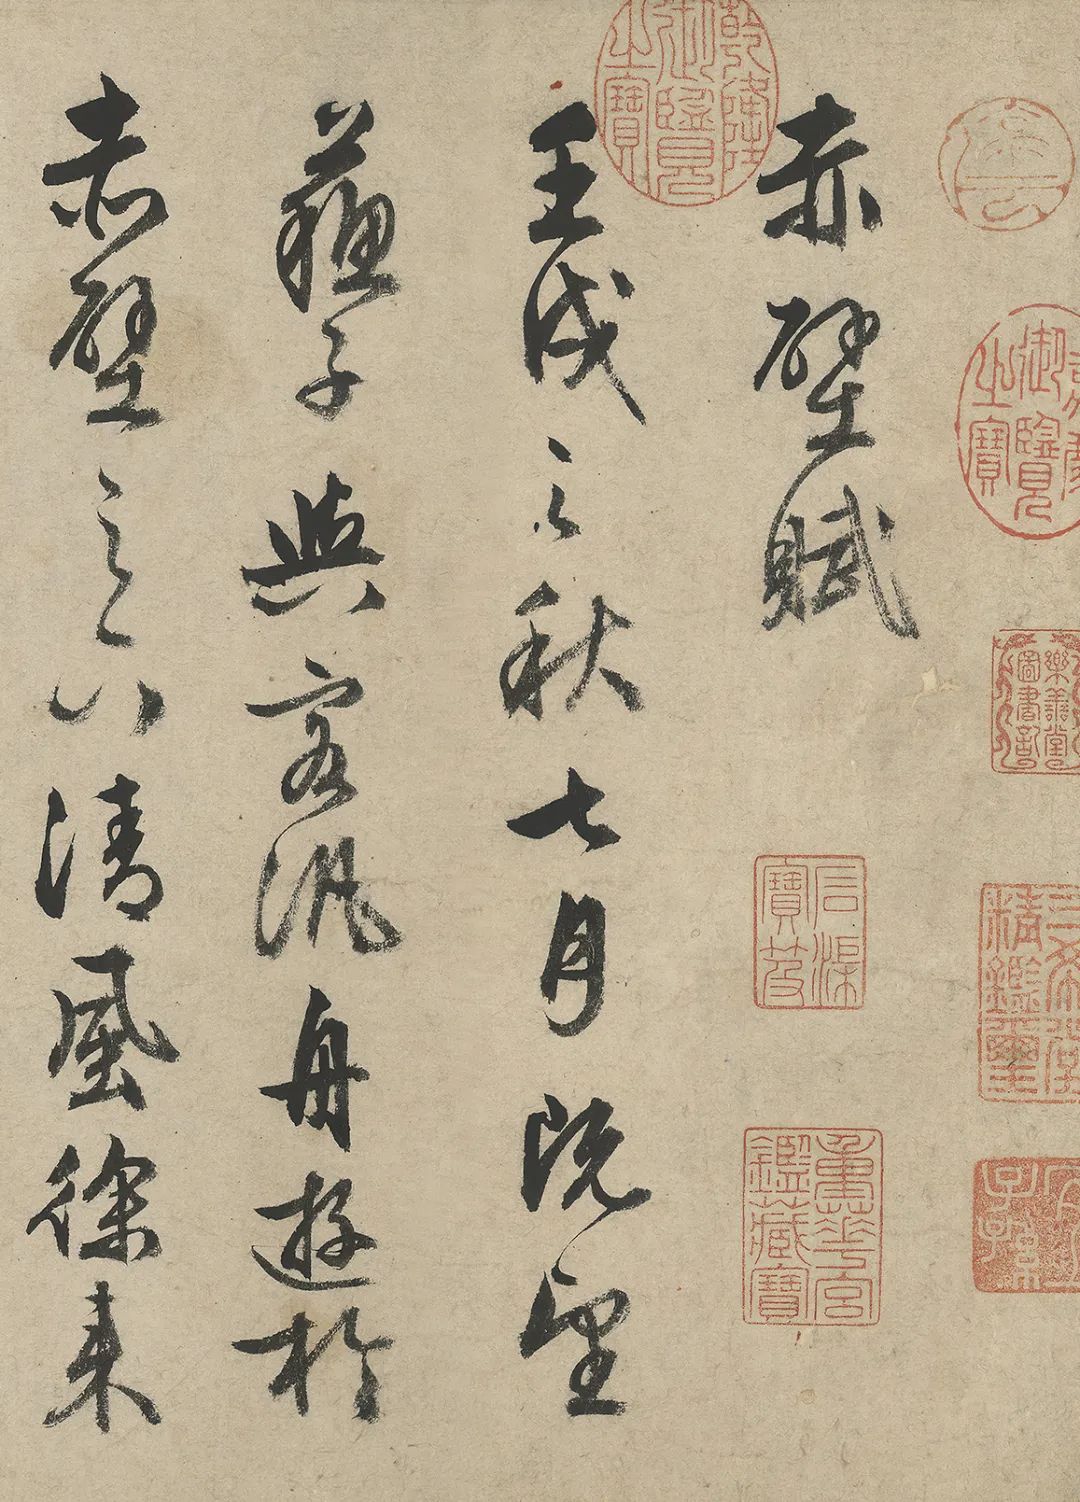 嘉慶御覽之寶
樂善堂圖書記
三希堂精鑑璽
宜子孫
乾隆御覽之寶
赤壁賦
石渠寶笈
重華宮鑑藏寶
壬戌之秋七月既望
蘇子與客汎舟遊於
赤壁之下清風徐来